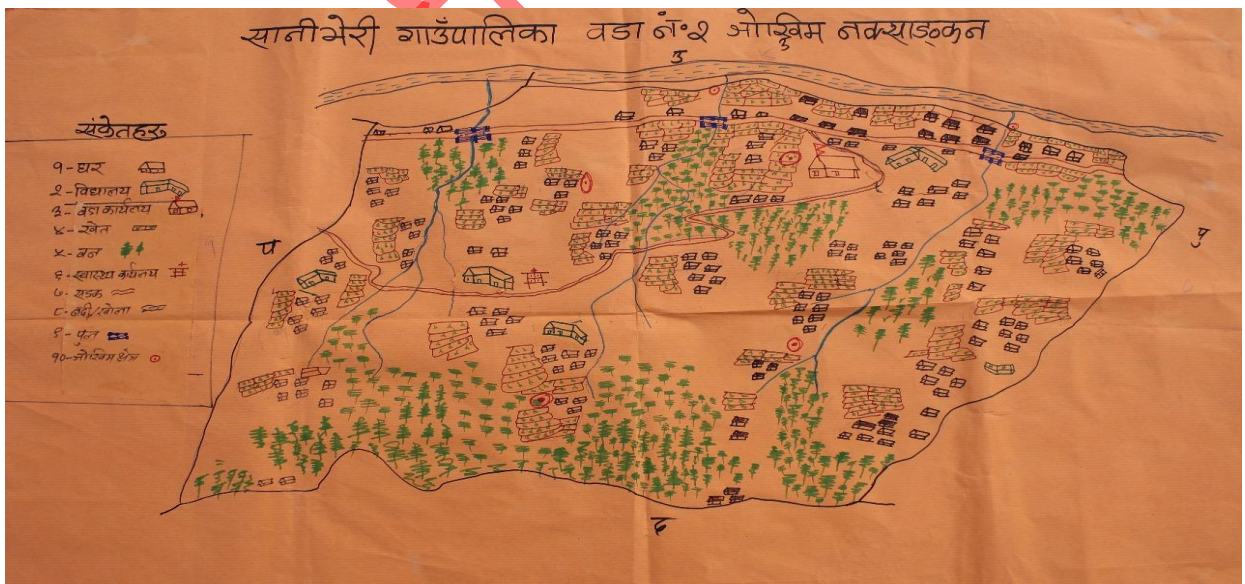 सानीभेरी गाउँपालिका वडा नं॰२ जोखिम नक्साङ्कन
उ
संकेतहरु
१- घर
२- विद्यालय
३- वडा कार्यालय
४- खेत
५- वन
६- स्वास्थ्य कार्यालय
७- सडक
८- नदी/खोला
९- पुल
१०- जोखिम क्षेत्र
प
पु
द